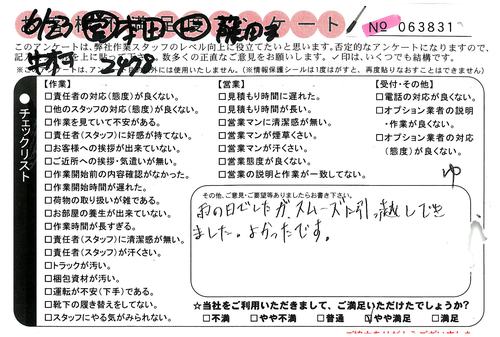 お客様の満足度アンケート
No 063831
このアンケートは、弊社作業スタッフのレベル向上に役立てたいと思います。否定的なアンケートになりますので、
数多くの正直なご意見をお願いします。✓印は、いくつでも結構です。
※このアンケートは、アンケート以外には使用いたしません。(※情報保護シールは1度がすと、再度貼りなおすことはできません)
チェックリスト
【作業】
□責任者の対応(態度)が良くない。
□他のスタッフの対応(態度)が良くない。
□作業を見ていて不安がある。
□責任者(スタッフ)に好感が持てない。
□お客様への挨拶が出来ていない。
□ご近所への挨拶・気遣いが無い。
□作業開始前の内容確認がなかった。
□作業開始時間が遅れた。
□荷物の取り扱いが雑である。
□お部屋の養生が出来ていない。
□作業時間が長すぎる。
□責任者(スタッフ)に清潔感が無い。
□責任者(スタッフ)が汗くさい。
□トラックが汚い。
□梱包資材が汚い。
□運転が不安(下手)である。
□靴下の履き替えをしてない。
□スタッフにやる気がみられない。
【営業】
□見積もり時間に遅れた。
□見積もり時間が長い。
□営業マンに清潔感が無い。
□営業マンが煙草くさい。
□営業マンが汗くさい。
□営業態度が良くない。
□営業の説明と作業が一致してない。
【受付・その他】
□電話の対応が良くない。
□オプション業者の説明
・作業が良くない。
□オプション業者の対応
(態度)が良くない。
その他、ご意見・ご要望等ありましたらお書き下さい。
雨の日でしたが、スムーズに引っ越しでき
ました。よかったです。
☆当社をご利用いただきまして、ご満足いただけたでしょうか?
□不満 □やや不満 □普通 ☑やや満足 □満足